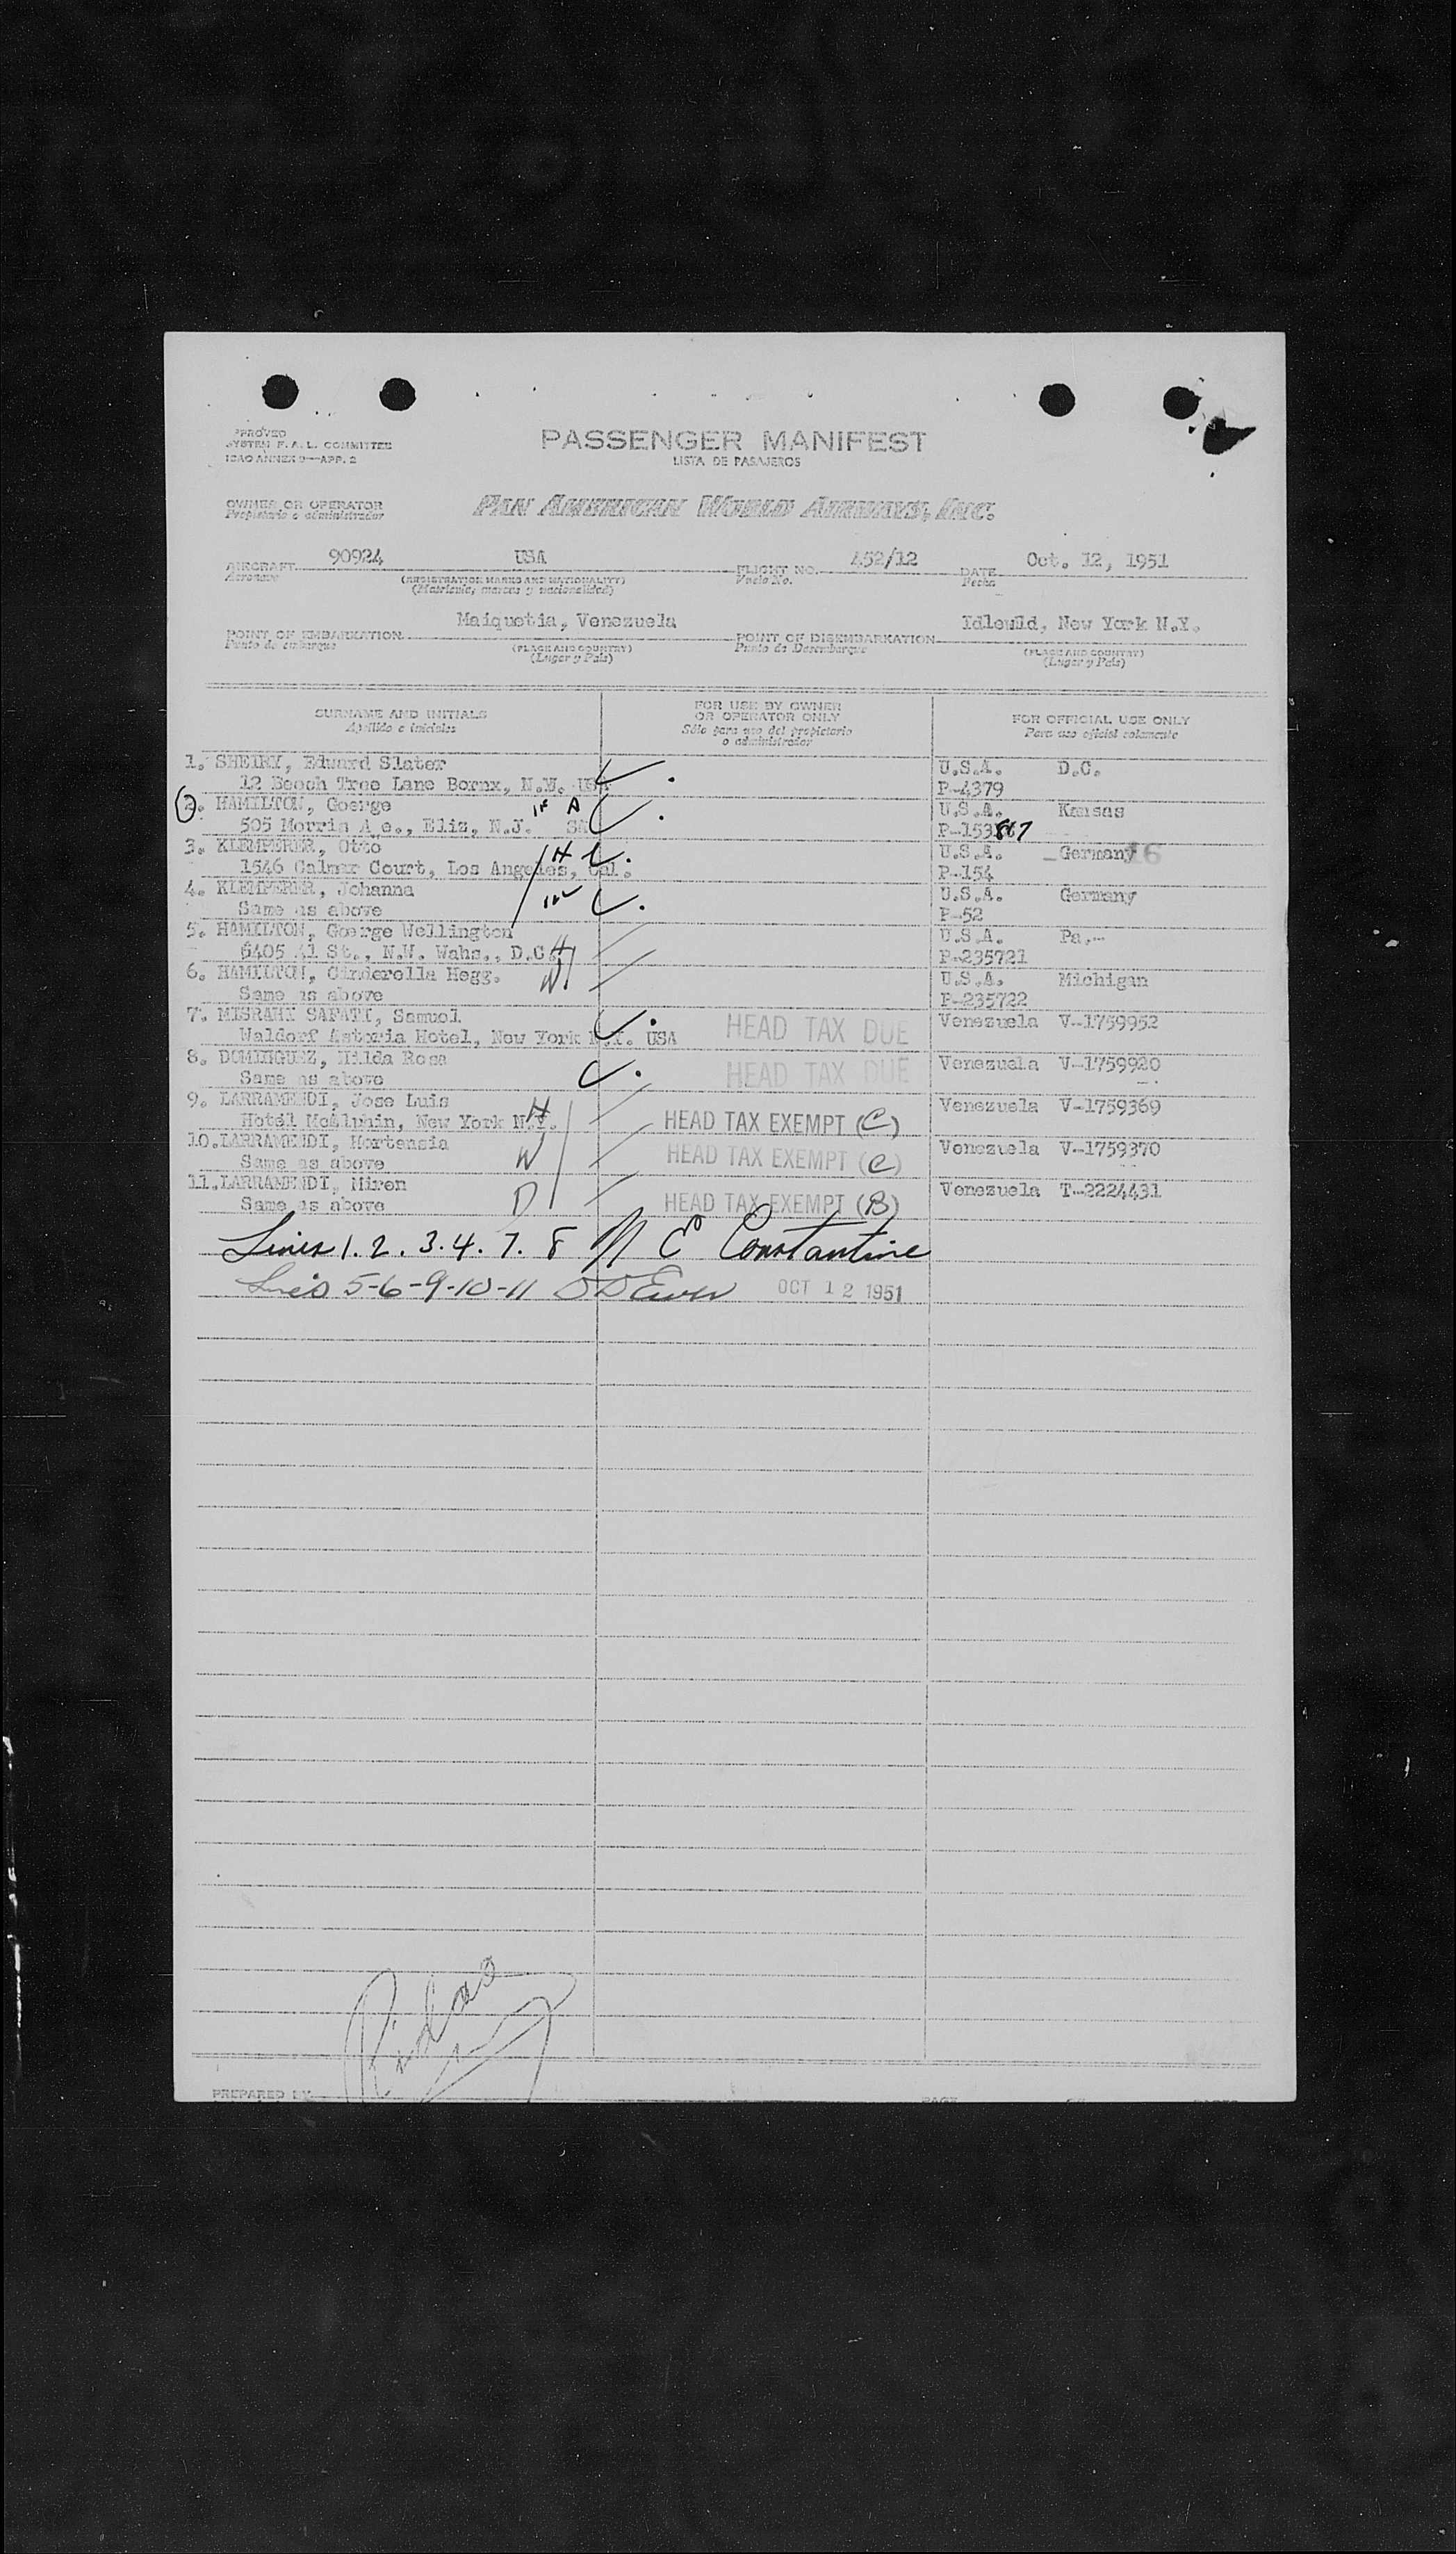 PPROVED
SYSTEM F.A.L. COMMITTEE
ICAO ANNEX 9—APP. 2
PASSENGER MANIFEST
LISTA DE PASAJEROS
OWNER OR OPERATOR
Propietario o administrador
PAN AMERICAN WORLD AIRWAYS, INC.
AIRCRAFT 90924 USA FLIGHT NO. 452/12 DATE Oct. 12, 1951
Aeronave (REGISTRATION MARKS AND NATIONALITY) Vuelo No. Fecha
(Matrícula, marcas y nacionalidad)
POINT OF EMBARKATION Maiquetia, Venezuela POINT OF DISEMBARKATION Idlewild, New York N.Y.
Punto de embarque (PLACE AND COUNTRY) Punto de Desembarque (PLACE AND COUNTRY)
(Lugar y País) (Lugar y País)
SURNAME AND INITIALS FOR USE BY OWNER OR OPERATOR ONLY FOR OFFICIAL USE ONLY
Apellido e iniciales Sólo para uso del propietario o administrador Para uso oficial solamente
1. SHEIRY, Edward Slater U.S.A. D.C.
12 Beech Tree Lane Bornx, N.Y. USA P-4379
2. HAMILTON, Goerge U.S.A. Kansas
505 Morris A e., Eliz, N.J. P-153
3. KLEMPERER, Otto H U.S.A. Germany 16
1546 Calmar Court, Los Angeles, Cal. P-154
4. KLEMPERER, Johanna U.S.A. Germany
Same as above P-52
5. HAMILTON, Goerge Wellington U.S.A. Pa.--
6405 41 St., N.W. Wahs., D.C. H P-235721
6. HAMILTON, Cinderella Hegg. W U.S.A. Michigan
Same as above P-235722
7. MISRAHI SAFATI, Samuel Venezuela V-1759952
Waldorf Astoria Hotel, New York N.Y. USA HEAD TAX DUE
8. DOMINGUEZ, Hilda Rosa Venezuela V-1759920
Same as above HEAD TAX DUE
9. LARRAMENDI, Jose Luis H Venezuela V-1759369
Hotel McAlphin, New York N.Y. HEAD TAX EXEMPT (C)
10. LARRAMENDI, Hortensia Venezuela V-1759370
Same as above W HEAD TAX EXEMPT (C)
11. LARRAMENDI, Miren Venezuela T-2224431
Same as above D HEAD TAX EXEMPT (B)
Lines 1. 2. 3. 4. 7. 8 N E Constantine
Lines 5-6-9-10-11 OCT 12 1951
PREPARED BY